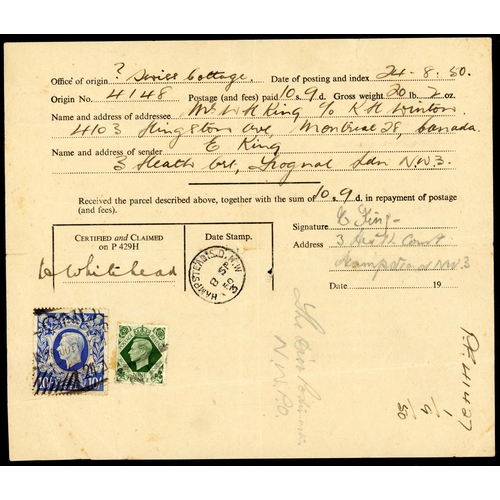 Office of origin ? Swiss Cottage. Date of posting and index 24-8.50.
Origin No. 4148 Postage (and fees) paid 10 s. 9 d. Gross weight 20 lb. 2 oz.
Name and address of addressee Mr W H King c/o K H Winton
4103 Kingston Ave, Montreal 28, Canada
Name and address of sender E King
3 Heath Crt, Frognal Ldn N.W.3.
Received the parcel described above, together with the sum of 10 s. 9 d. in repayment of postage
(and fees).
Signature E King
Address 3 Heath Court
Hampstead NW3
Date 19
CERTIFIED AND CLAIMED
ON P 429H
Whitehead
Date Stamp.
HAMPSTEAD S.O. N.W.3
8 SP
50
N.W.P.O.
P.F. 41427
1/9/50